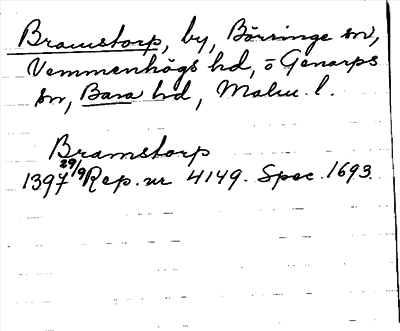 Bramstorp, by, Börringe sn,
Vemmenhögs hd, o Genarps
sn, Bara hd, Malm. l.
Bramstorp
1397 29/9 Rep. nr 4149. Spec. 1693.